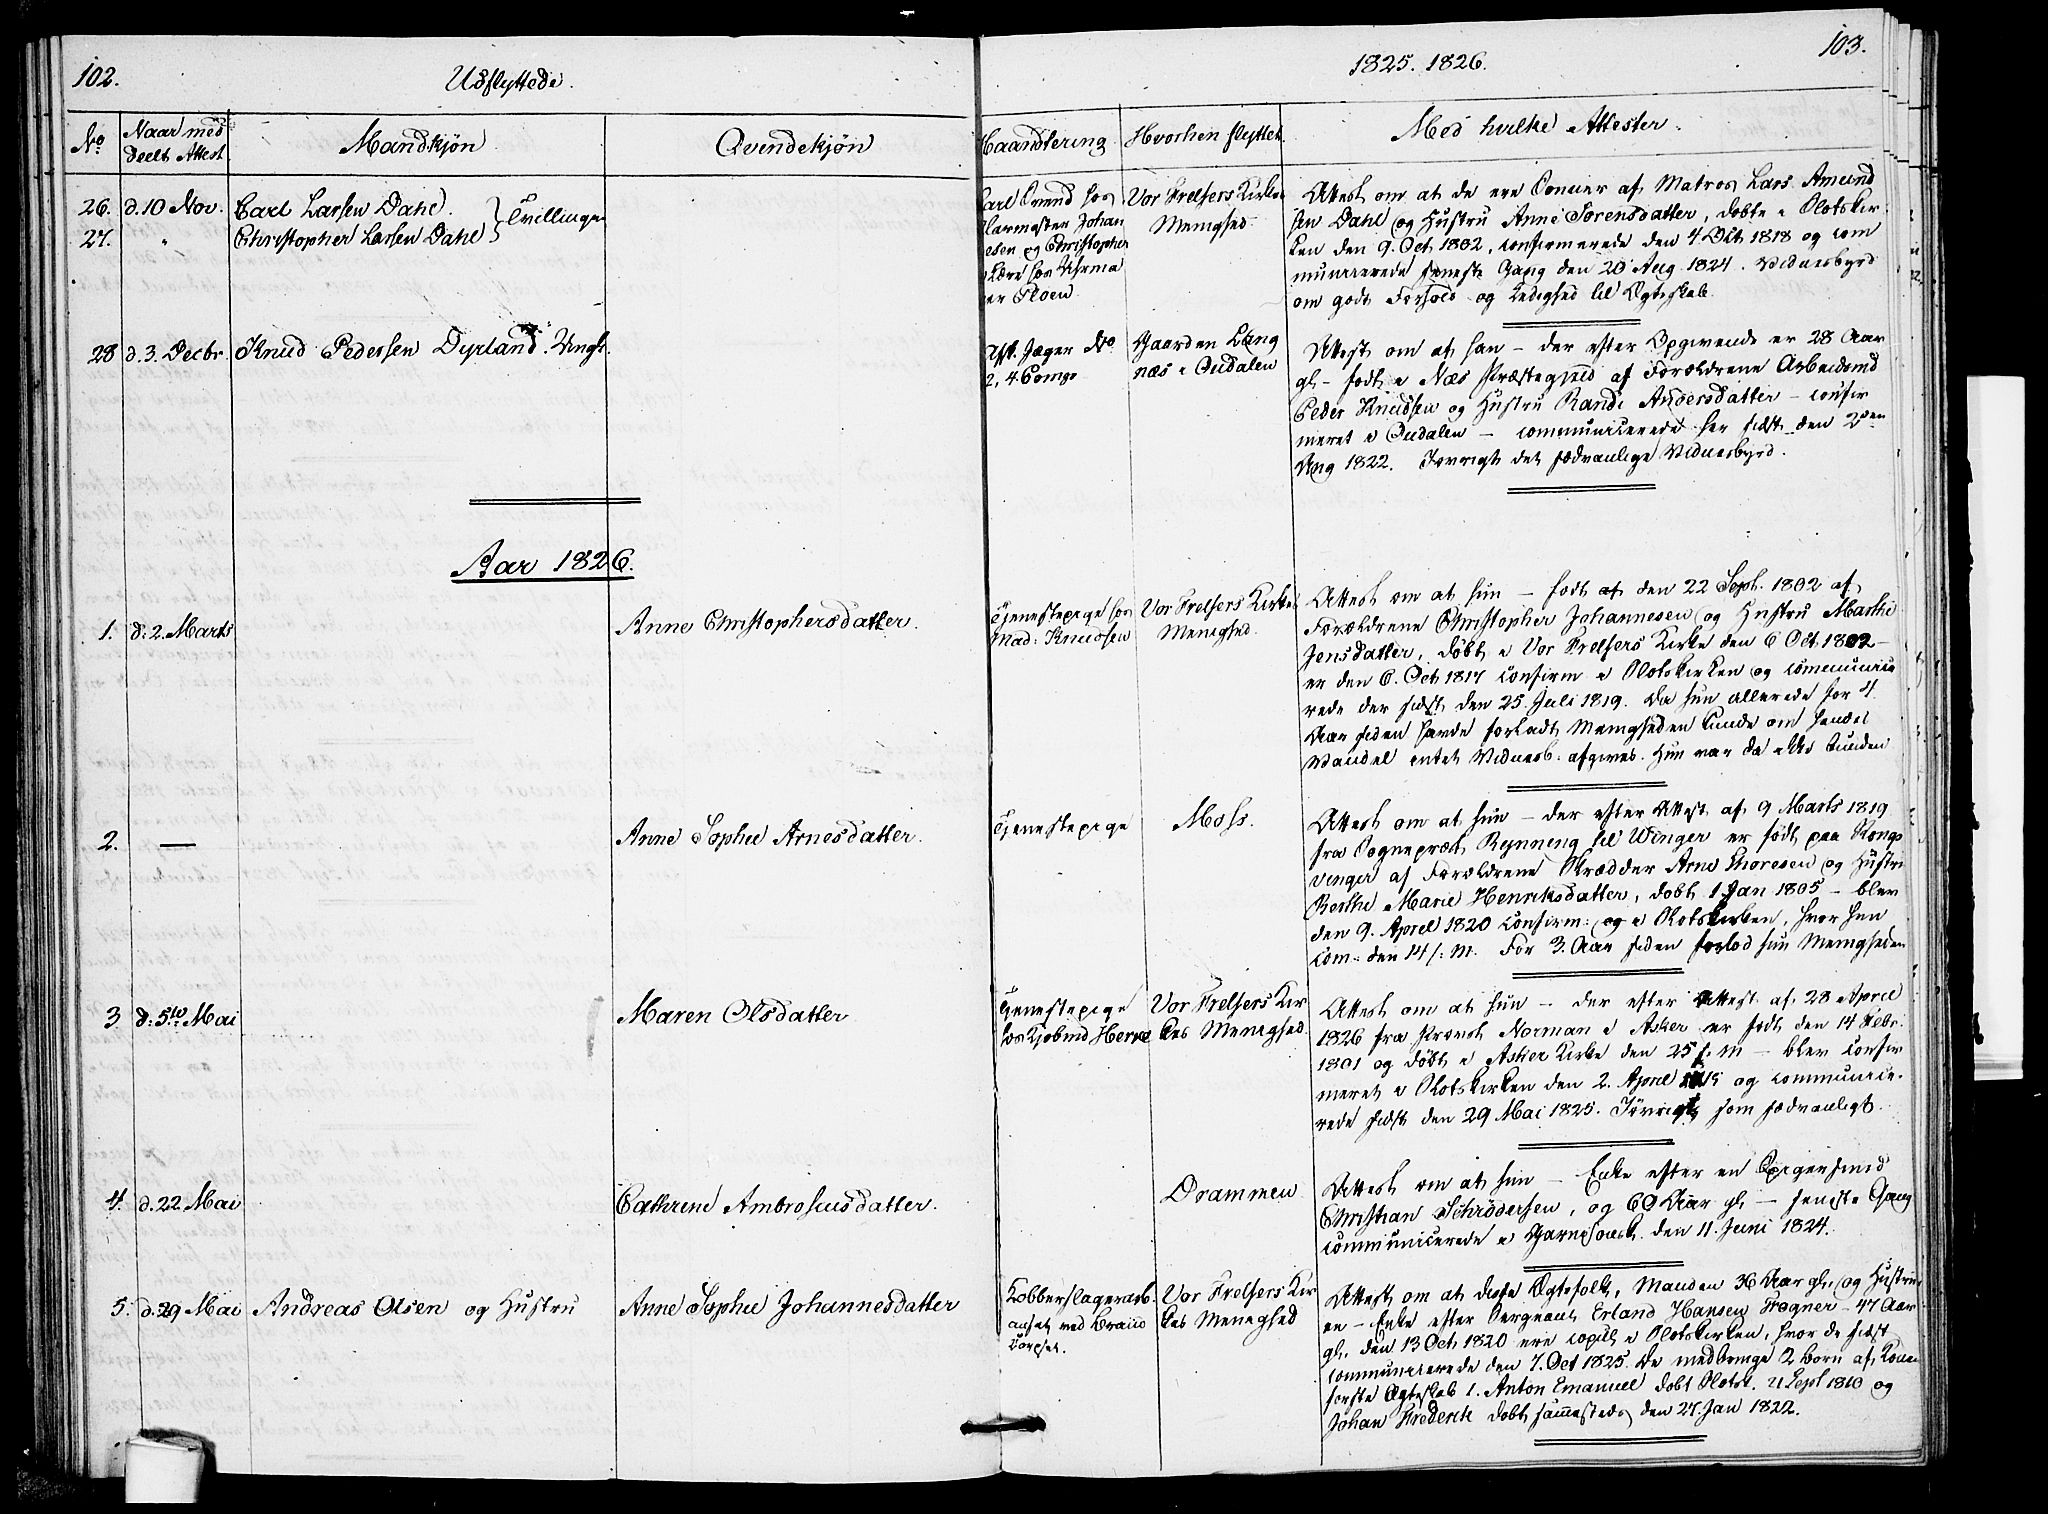 102.
Udflyttede.
No
Naar med
deelt Attest.
Mandkjøn
Qvindekjøn
26. d. 10 Nov. Carl Larsen Dahl.
27. " Christopher Larsen Dahl } Tvillinger
28 d. 3. Decbr. Knud Pedersen Dyrland. Ungk.
Aar 1826.
1. d. 2. Marts Anne Christophersdatter.
2. — Anne Sophie Arnesdatter.
3 d. 5te Mai Maren Olsdatter
4. d. 22 Mai Cathrine Ambrosiusdatter.
5. d. 29 Mai Andreas Olsen og Hustru Anne Sophie Johannesdatter
1825. 1826.
103.
Haandtering
Hvorhen flyttet.
Med hvilke Attester.
Carl Svend hos
Johan
esen og Christopher
Lære hos Uhrma
er Ploen.
Vor Frelsers Kirkes
Menighed.
Attest om at de ere Sønner af Matros Lars Amund
sen Dahl og Hustru Anne Sørensdatter, døbte i Slotskir
ken den 9. Oct 1802, confirmerede den 4 Oct 1818 og com
municerede seneste Gang den 20 Aug. 1824. Vidnesbyrd
om godt Forhold og Ledighed til Ægteskab.
Jæger No
2, 4. Comp.
Gaarden Lang
næs i Oudalen
Attest om at han – der efter Opgivende er 28 Aar
gl – født i Næs Præstegjeld af Forældrene Arbeidsmd
Peder Knudsen og Hustru Randi Andersdatter – confir
meret i Oudalen – communicerede her sidst den 2den
Aug 1822. Iøvrigt det sædvanlige Vidnesbyrd.
Tjenestepige hos
Mad: Knudsen
Vor Frelsers Kirkes
Menighed.
Attest om at hun – født den 22 Sept. 1802 af
Forældrene Christopher Johannesen og Hustru Marthe
Jensdatter, døbt i Vor Frelsers Kirke den 6 Oct 1802 –
er den 6. Oct 1817 confirm i Slotskirken og communice
rede der sidst den 25. Juli 1819. Da hun allerede for 4
Aar siden havde forladt Menigheden kunde om hendes
Vandel intet Vidnesb: afgives. Hun var da ikke bunden
Tjenestepige
Moss.
Attest om at hun – der efter Attest af 9 Marts 1819
fra Sognepræst Rynning til Winger er født paa Kongs
vinger af Forældrene Skrædder Arne Thoresen og Hustru
Berthe Marie Henriksdatter, døbt 1 Jan 1805 – blev
den 9. April 1820 confirm: og i Slotskirken, hvor hun
com: den 14 s: M. For 3. Aar siden forlod hun Menigheden
Tjenestepige
hos Kjøbmd Herre
Vor Frelsers Kir
kes Menighed.
Attest om at hun – der efter Attest af 28 April
1826 fra Provst Norman i Asker er født den 14 Febr.
1801 og døbt i Asker Kirke den 25 s. M – blev confir
meret i Slotskirken den 2. April og communice-
rede sidst den 29 Mai 1825. Iøvrigt som sædvanligt.
Drammen
Attest om at hun – Enke efter en
Christian Schrödersen, og 60 Aar gl – seneste Gang
communicerede i den 11. Juni 1824.
Kobberslagerarb.
ansat ved
Corpset.
Vor Frelsers Kir
kes Menighed
Attest om at disse Ægtefolk, Manden 36 Aar gl. og Hustru
en – Enke efter Sergeant Erland Hansen Fogner – 47 Aar
gl. den 13 Oct 1820 ere copul i Slotskirken, hvor de sidst
communicerede den 7. Oct 1825. De medbringe 2 børn af
første Ægteskab 1. Anton Emanuel døbt Slotsk. Sept 1810 og
Johan Frederik døbt sammesteds den 27. Jan 1822.